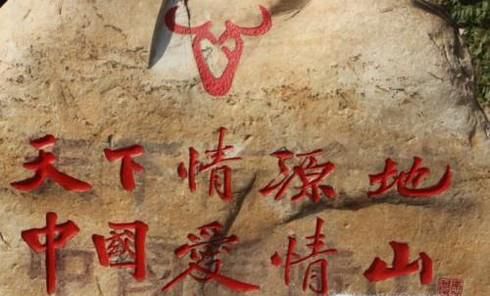 天下情源地
中國愛情山